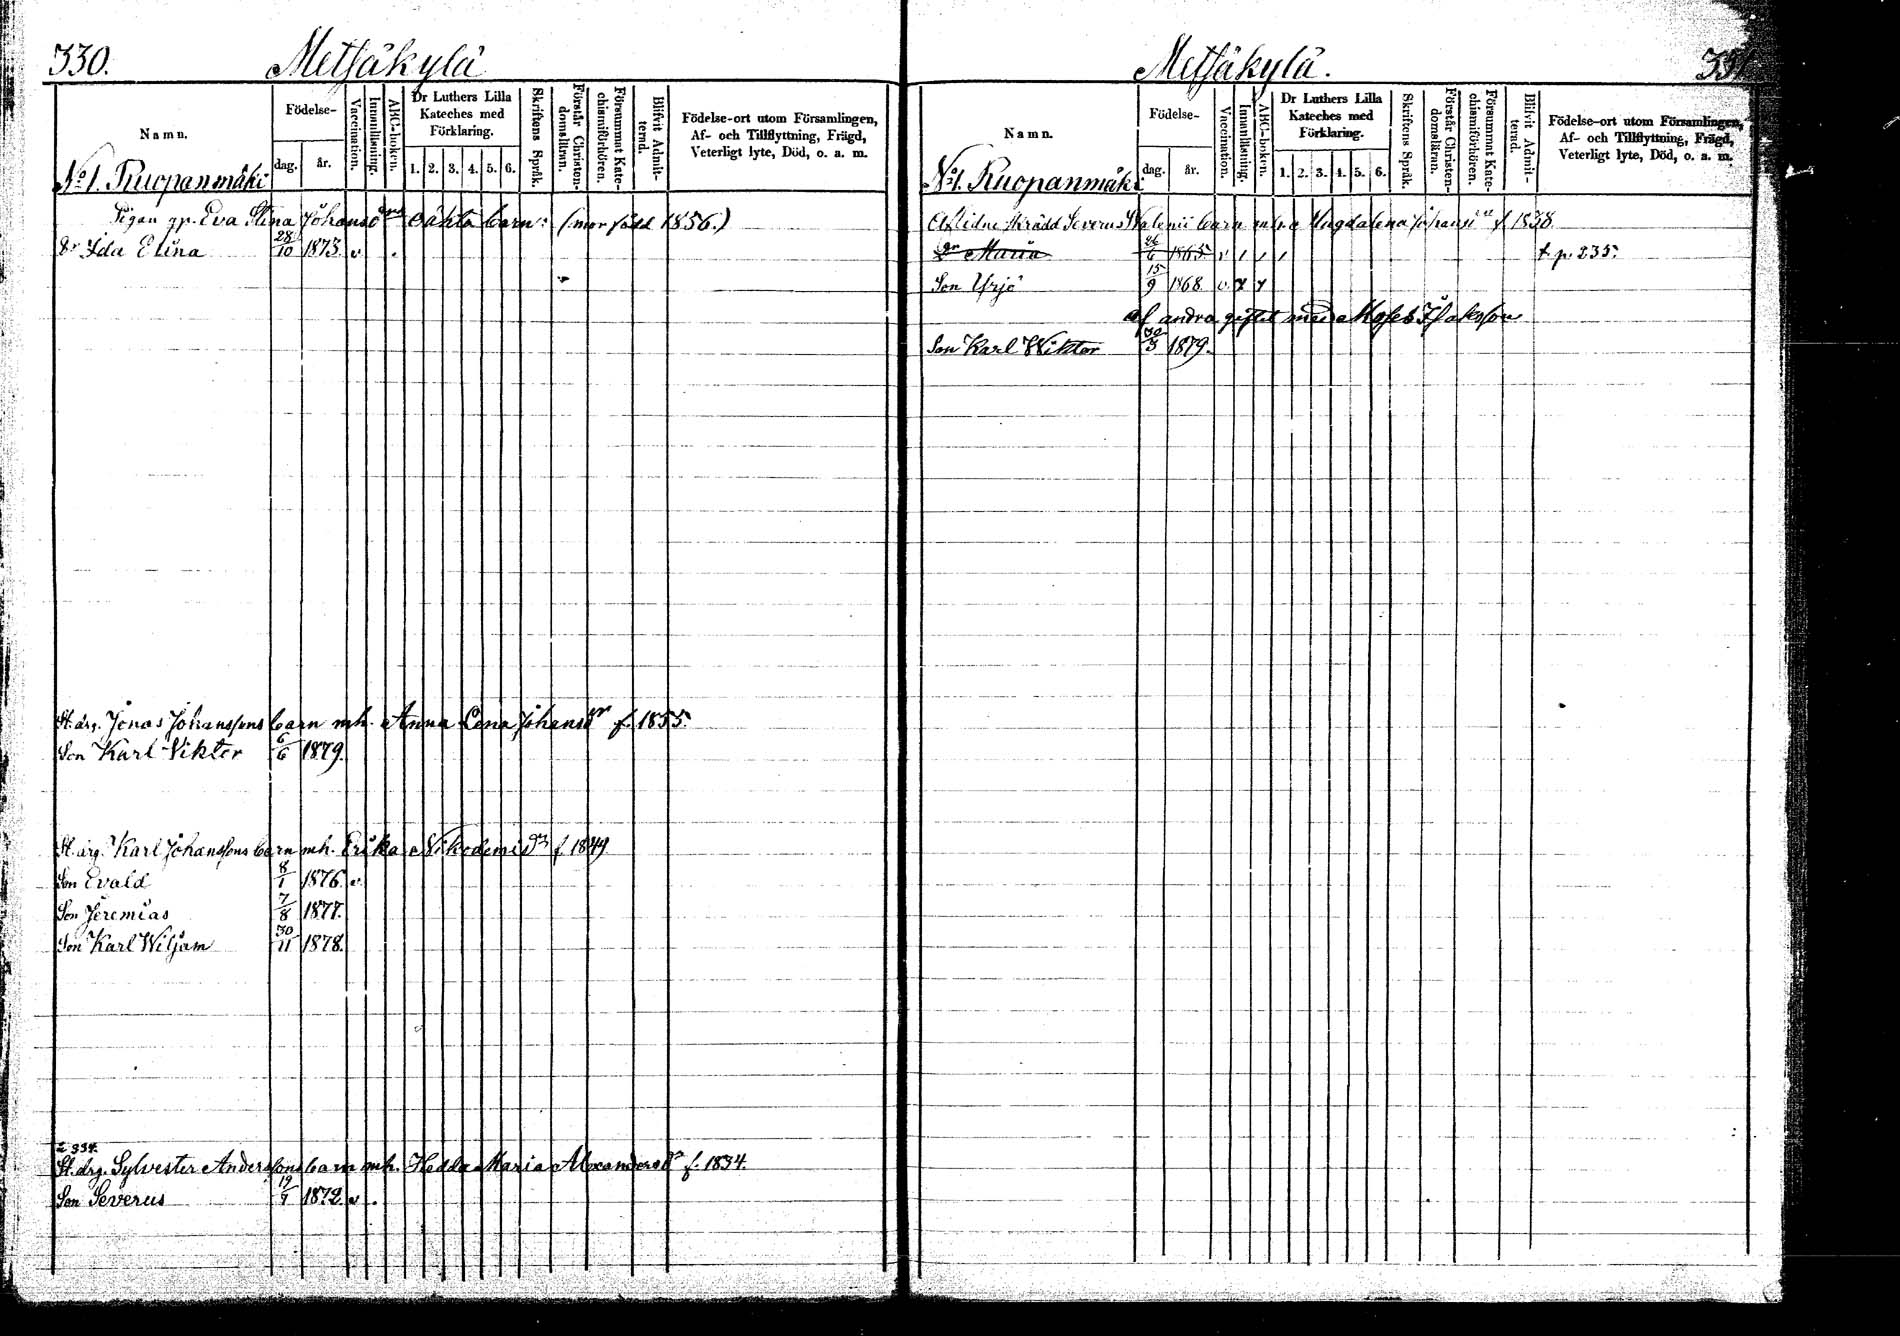 330. Metsäkylä
Namn.
Födelse-
dag. år.
Vaccination.
Innanläsning.
ABC-boken.
Dr Luthers Lilla Kateches med Förklaring.
1. 2. 3. 4. 5. 6.
Skriftens Språk.
Förstår Christendomsläran.
Försummat Katechismiförhören.
Blifvit Admitterad.
Födelse-ort utom Församlingen,
Af- och Tillflyttning, Frägd,
Veterligt lyte, Död, o. a. m.
No 1. Ruopanmäki
Pigan gp. Eva Stina Johansdrs oäkta barn: (mor född 1856.)
Dr Ida Elina 28/10 1873. v
St. drg. Jonas Johanssons barn mh. Anna Lena Johansdr f. 1855
Son Karl Viktor 6/6 1879.
St. drg. Karl Johanssons barn mh. Erika Nikodemidr f. 1849
Son Evald 8/1 1876. v
Son Jeremias 7/8 1877.
Son Karl Wiljam 30/11 1878.
St. drg. Sylvester Anderssons barn mh. Hedda Maria Alexandersdr f. 1834.
Son Severus 19/9 1872. v
Metsäkylä. 331
Namn.
Födelse-
dag. år.
Vaccination.
Innanläsning.
ABC-boken.
Dr Luthers Lilla Kateches med Förklaring.
1. 2. 3. 4. 5. 6.
Skriftens Språk.
Förstår Christendomsläran.
Försummat Katechismiförhören.
Blifvit Admitterad.
Födelse-ort utom Församlingen,
Af- och Tillflyttning, Frägd,
Veterligt lyte, Död, o. a. m.
No 1. Ruopanmäki
Aflidne skrädd Severus barn m. Magdalena Johansdr f. 1838
Dr Maria 26/6 1865 t p. 235.
Son Yrjö 15/9 1868 v
af andra giftet med Moses Isaksson
Son Karl Wiktor 30/3 1879.